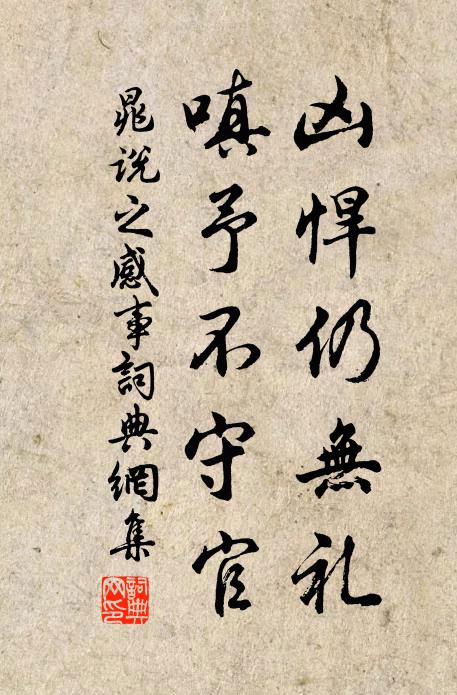 凶悍仍無礼
嗔予不守官
晁说之感事詞典網集
詞典
网印